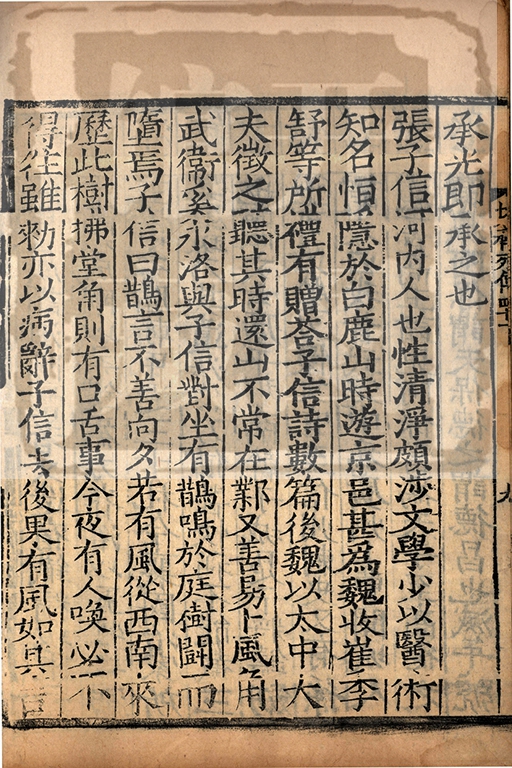 承光即承之也
張子信河内人也性清淨頗涉文學少以醫術
知名恒隱於白鹿山時遊京邑甚為魏收崔季
舒等所禮有贈荅子信詩數篇後魏以太中大
夫徵之聽其時還山不常在鄴又善易卜風角
武衛奚永洛與子信對坐有鵲鳴於庭樹鬭而
墮焉子信曰鵲言不善向夕若有風從西南來
歷此樹拂堂角則有口舌事今夜有人喚必不
得往雖勑亦以病辭子信去後果有風如其言